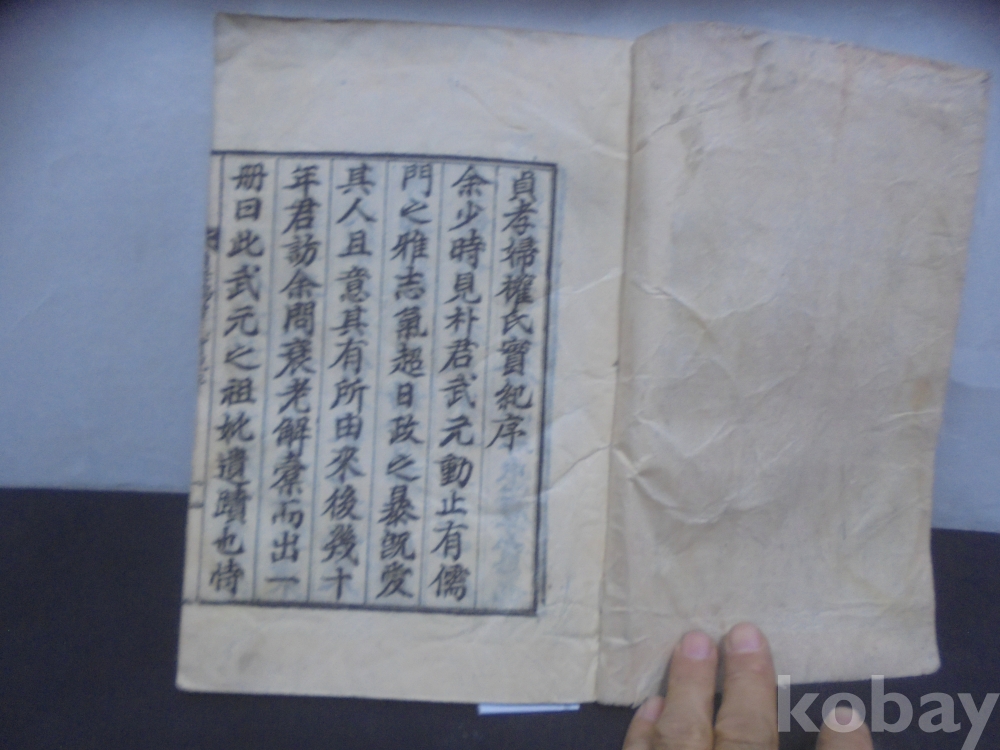 貞孝婦權氏實紀序
余少時見朴君武元動止有儒
門之雅志氣超日政之暴旣愛
其人且意其有所由來後幾十
年君訪余問衰老解橐而出一
册曰此武元之祖妣遺蹟也恃
kobay